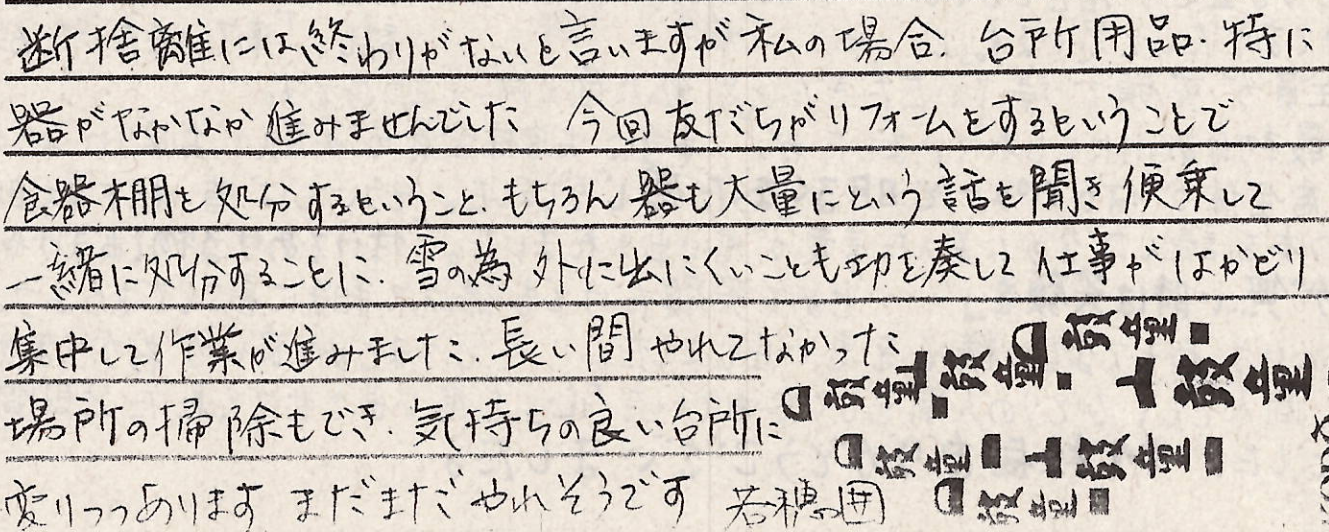 断捨離には終わりがないと言いますが私の場合、台所用品・特に
器がなかなか進みませんでした 今回友だちがリフォームをするということで
食器棚を処分するということ、もちろん器も大量にという話を聞き便乗して
一緒に処分することに、雪の為外に出にくいことも功を奏して仕事がはかどり
集中して作業が進みました、長い間やれてなかった
場所の掃除もでき、気持ちの良い台所に
変りつつあります まだまだやれそうです 若穂の囲